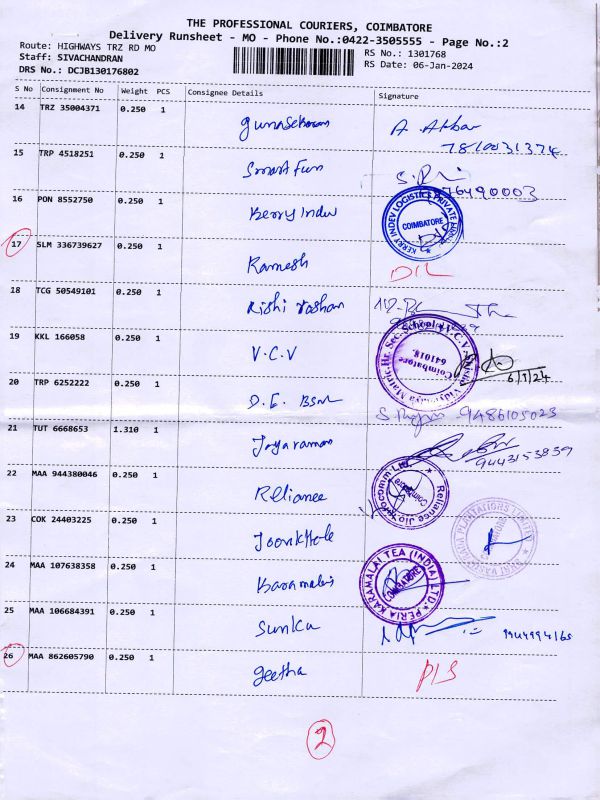 THE PROFESSIONAL COURIERS, COIMBATORE
Delivery Runsheet - MO - Phone No.:0422-3505555 - Page No.:2
Route: HIGHWAYS TRZ RD MO
RS No.: 1301768
Staff: SIVACHANDRAN
RS Date: 06-Jan-2024
DRS No.: DCJB130176802
S No Consignment No Weight PCS Consignee Details Signature
14 TRZ 35004371 0.250 1 Gunasekaran A Akbar
7810031374
15 TRP 4518251 0.250 1 Smart Fun
76490003
16 PON 8552750 0.250 1 Kerry Indev KERRY INDEV LOGISTICS PRIVATE COIMBATORE
17 SLM 336739627 0.250 1 Ramesh D/L
18 TCG 50549101 0.250 1 Rishi
19 KKL 166058 0.250 1 V.C.V V.C.V. Matric.Hr. Sec. School Coimbatore 641018. 6/1/24
20 TRP 6252222 0.250 1 D.E. BSNL 9486105023
21 TUT 6668653 1.310 1 Jayaraman 9443153859
22 MAA 944380046 0.250 1 Reliance Reliance Jio Infocomm Ltd. Coimbatore
23 COK 24403225 0.250 1 PLANTATIONS LIMITED
24 MAA 107638358 0.250 1 Karamalai PERIA KARAMALAI TEA (INDIA) LTD COIMBATORE
25 MAA 106684391 0.250 1
26 MAA 862605790 0.250 1 Geetha
2